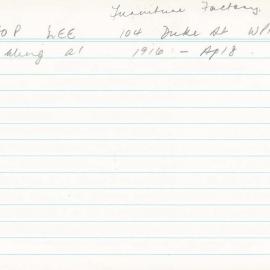 Furniture Factory
OP LEE 104 Duke St WP
King at 1916 - Apl 8.